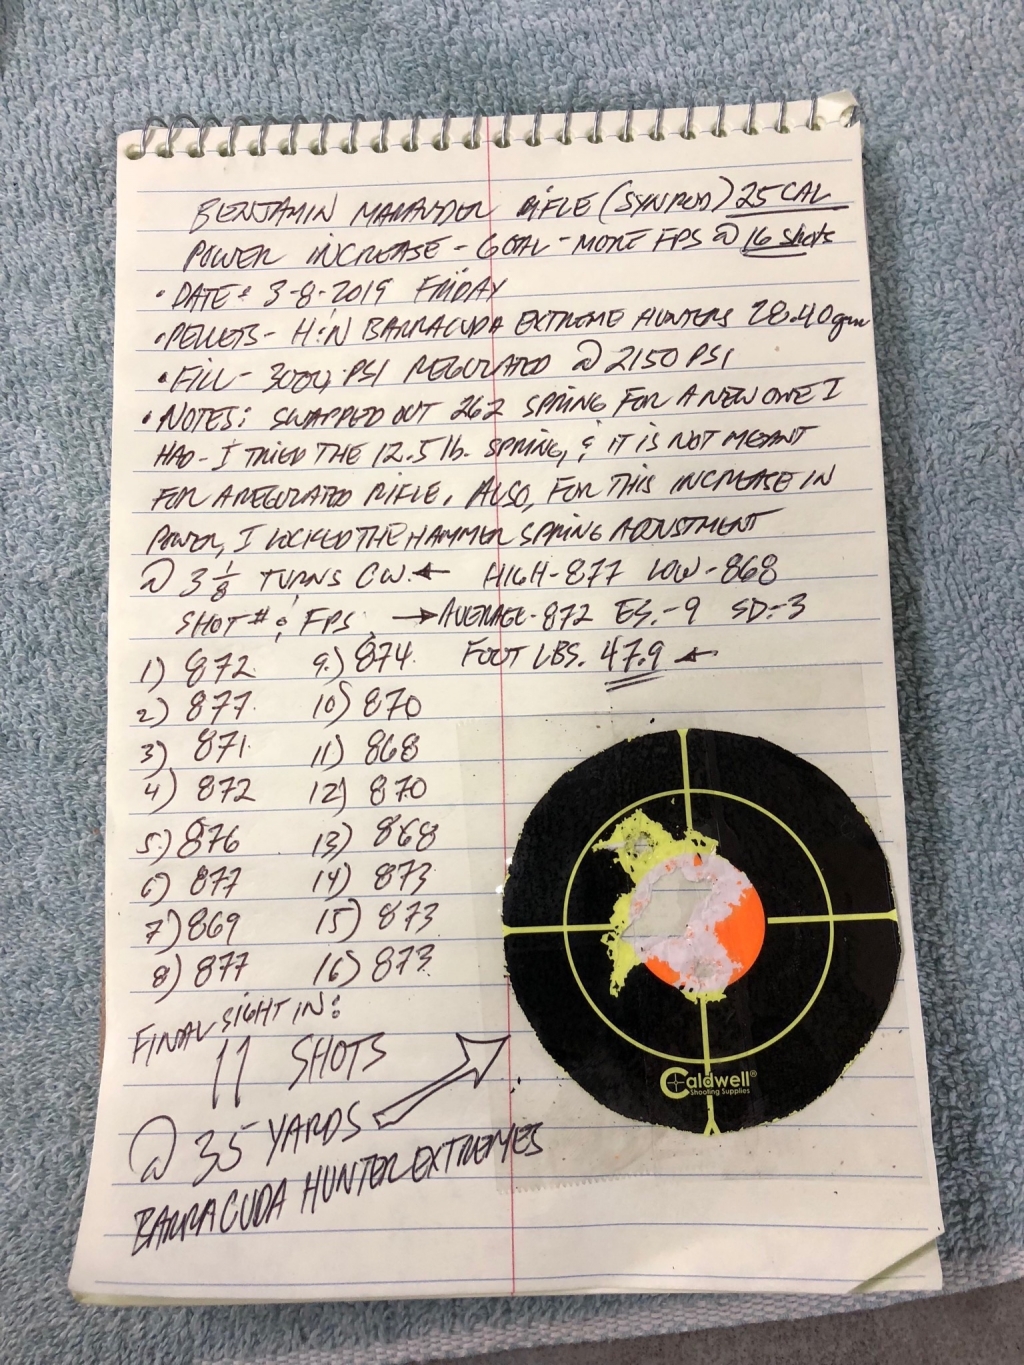 BENJAMIN MARAUDER RIFLE (SYNROD) 25 CAL
POWER INCREASE - GOAL - MORE FPS @ 16 shots
• DATE: 3-8-2019 FRIDAY
• PELLETS - H:N BARRACUDA EXTREME HUNTERS 28.40 grn
• FILL - 3000 PSI REGULATED @ 2150 PSI
• NOTES: SWAPPED OUT 262 SPRING FOR A NEW ONE I
HAD - I TRIED THE 12.5 lb. SPRING, & IT IS NOT MEANT
FOR A REGULATED RIFLE. ALSO, FOR THIS INCREASE IN
POWER, I LOCKED THE HAMMER SPRING ADJUSTMENT
@ 3 1/8 TURNS CW. ← HIGH - 877 LOW - 868
SHOT # & FPS: → AVERAGE - 872 ES. - 9 SD. - 3
FOOT LBS. 47.9 ←
1) 872 9.) 874
2) 877 10) 870
3) 871 11) 868
4) 872 12) 870
5.) 876 13) 868
6) 877 14) 873
7) 869 15) 873
8) 877 16) 873
FINAL SIGHT IN:
11 SHOTS
@ 35 YARDS
BARRACUDA HUNTER EXTREMES
Caldwell®
Shooting Supplies